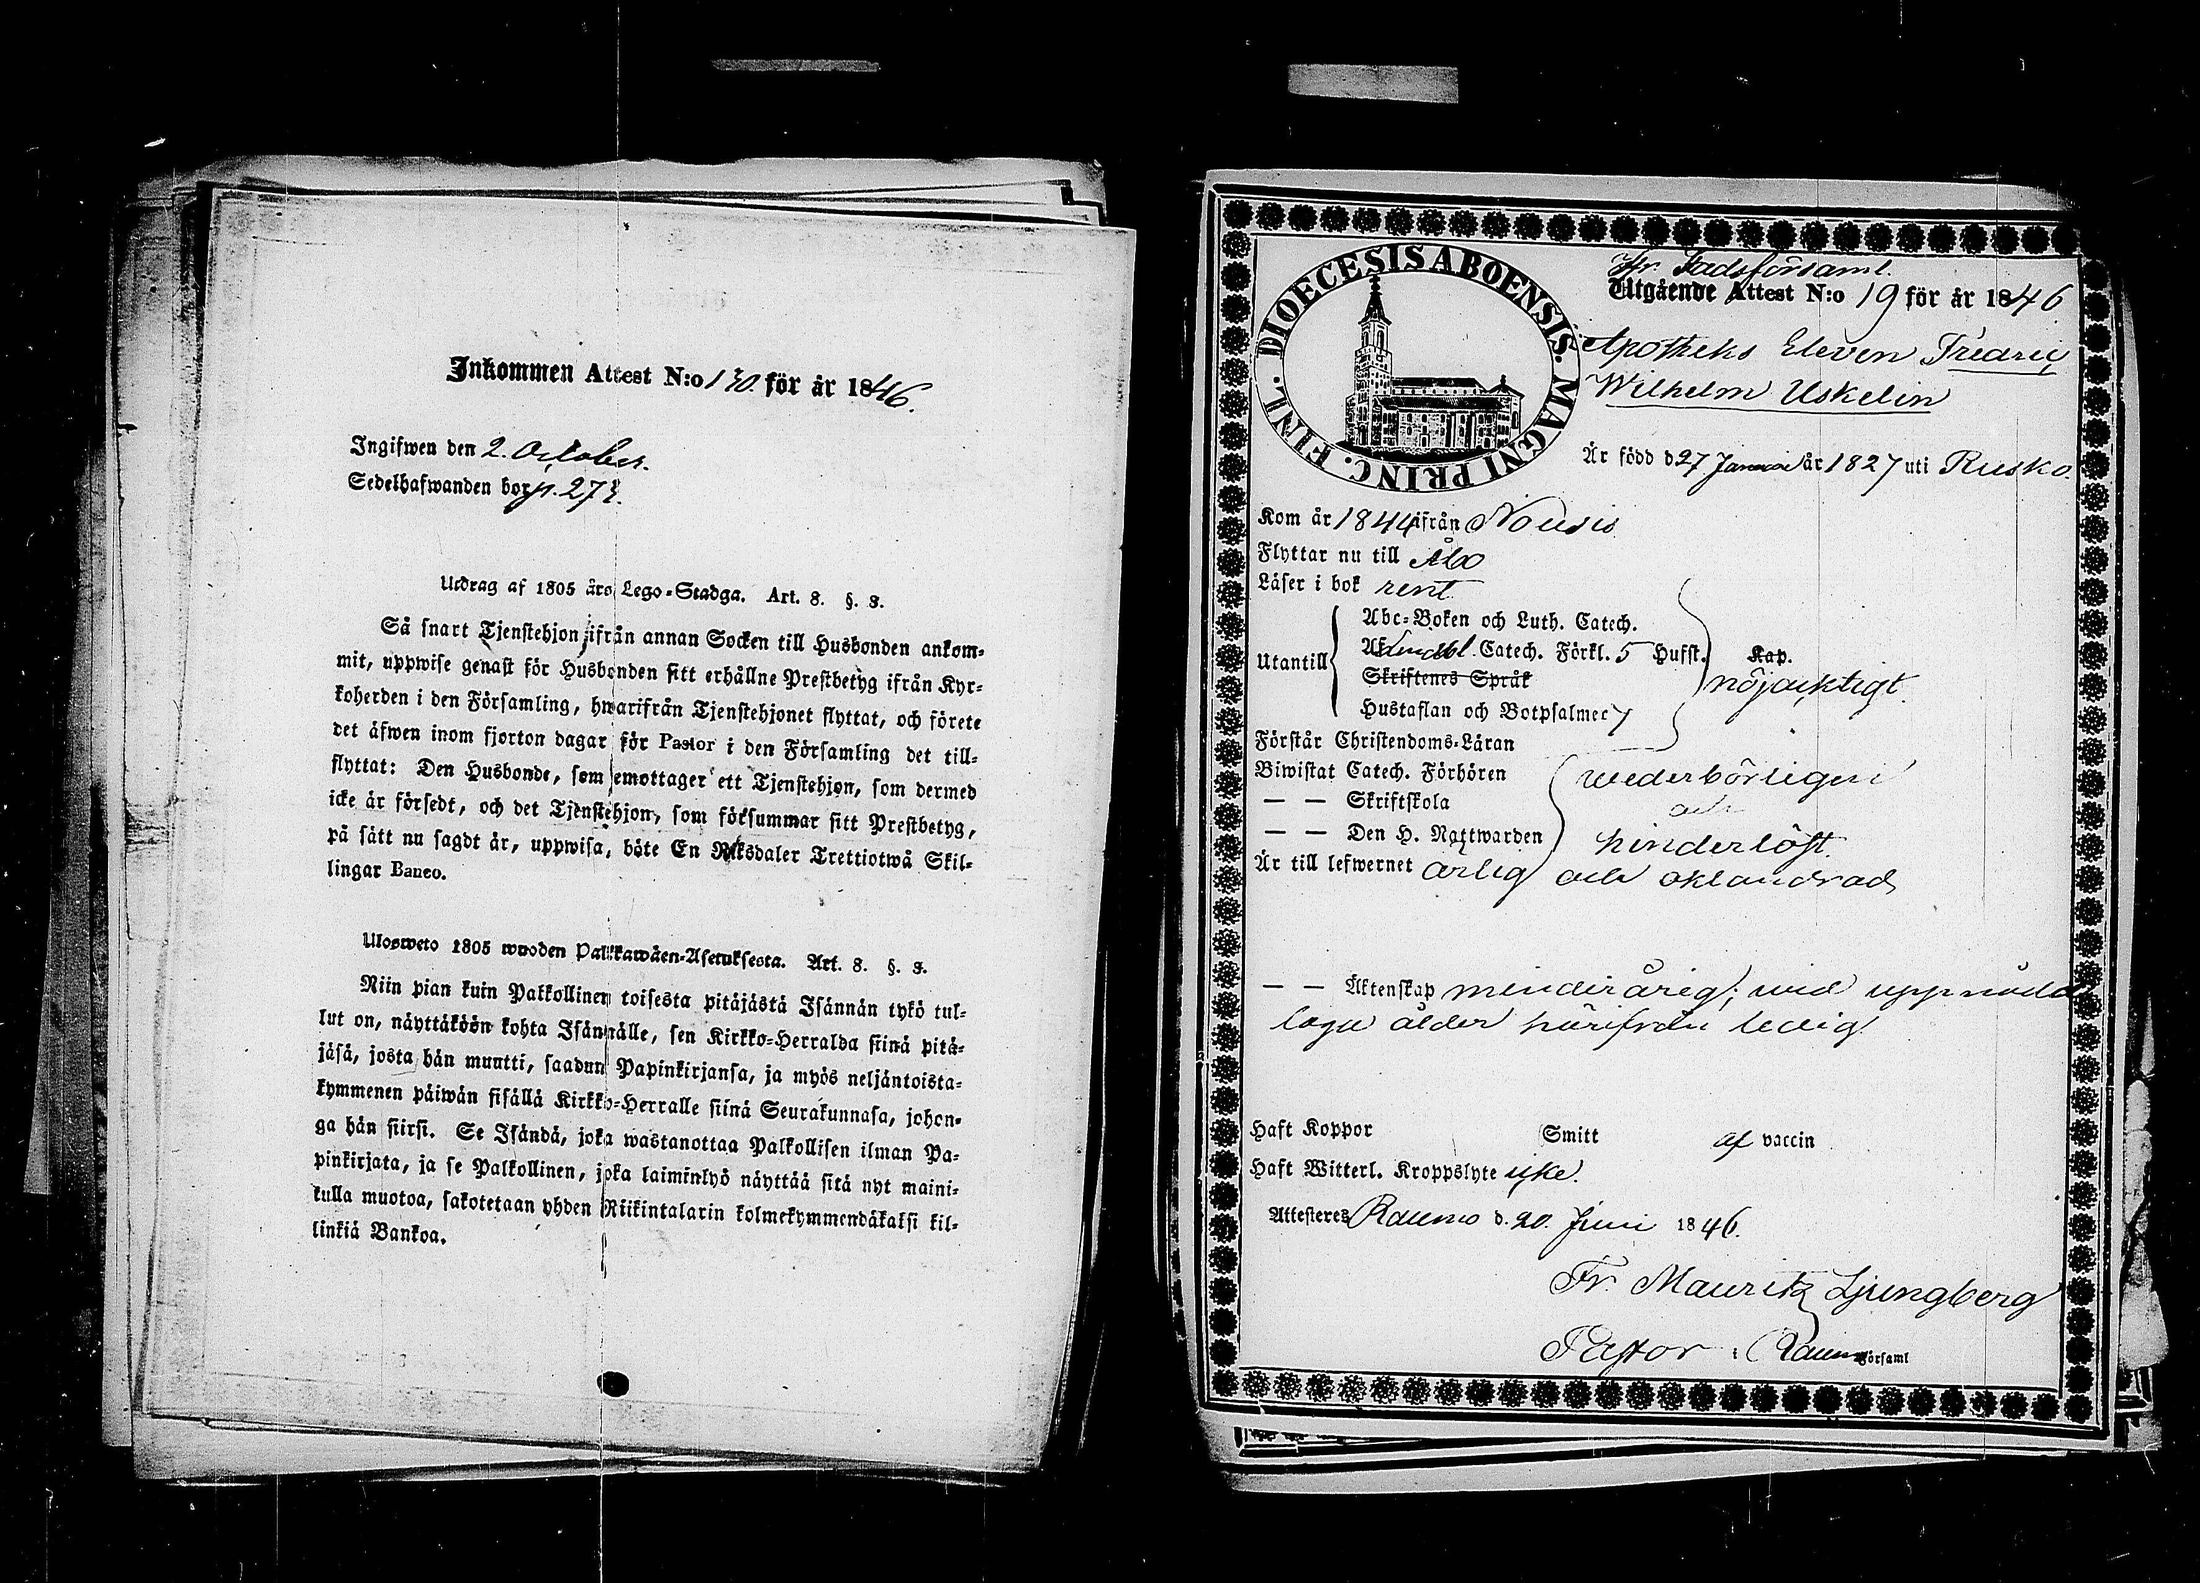 Inkommen Attest N:o 130. för år 1846.
Ingifwen den 2. October.
Sedelhafwanden bor p. 27
Utdrag af 1805 års Lego-Stadga. Art. 8. §. 8.
Så snart Tjenstehjon ifrån annan Socken till Husbonden ankom-
mit, uppwise genast för Husbonden sitt erhållne Prestbetyg ifrån Kyr-
koherden i den Församling, hwarifrån Tjenstehjonet flyttat, och förete
det äfwen inom fjorton dagar för Pastor i den Församling det till-
flyttat: Den Husbonde, som emottager ett Tjenstehjon, som dermed
icke är försedt, och det Tjenstehjon, som försummar sitt Prestbetyg,
på sätt nu sagdt är, uppwisa, böte En Riksdaler Trettiotwå Skil-
lingar Banco.
Ulosweto 1805 wuoden Palkkawäen-Asetuksesta. Art. 8. §. 8.
Niin pian kuin Palkollinen toisesta pitäjästä Isännän tykö tul-
lut on, näyttäköön kohta Isännälle, sen Kirkko-Herralda siinä pitä-
jäsä, josta hän muutti, saadun Papinkirjansa, ja myös neljäntoista-
kymmenen päiwän sisällä Kirkko-Herralle siinä Seurakunnasa, johon-
ga hän siirsi. Se Isändä, joka wastanottaa Palkollisen ilman Pa-
pinkirjata, ja se Palkollinen, joka laiminlyö näyttää sitä nyt maini-
tulla muotoa, sakotetaan yhden Riikintalarin kolmekymmendäkaksi kil-
linkiä Bankoa.
DIOECESIS ABOENSIS. MAGNI PRINC. FINL.
Fr. Stadsförsaml.
Utgående Attest N:o 19 för år 1846
Apotheks Eleven Fredric
Wilhelm Uskelin
Är född d 27 Januari år 1827 uti Rusko.
Kom år 1844 ifrån Nousis
Flyttar nu till Åbo
Läser i bok rent
Abc-Boken och Luth. Catech.
Utantill Catech. Förkl. 5 Hufst. Kap.
Skriftenes Språk nöjacktigt.
Hustaflan och Botpsalmer 7
Förstår Christendoms-Läran
Biwistat Catech. Förhören wederbörligen
— — Skriftskola och
— — Den H. Nattwarden hinderlöst.
Är till lefwernet ärlig och oklandrad
— — Äktenskap minderårig; wid uppnådd
laga ålder härifrån ledig
Haft Koppor Smitt af vaccin
Haft Witterl. Kroppslyte icke.
Attesteres Raumo d. 20. Juni 1846.
Fr. Mauritz Ljungberg
Pastor i Raumo Församl